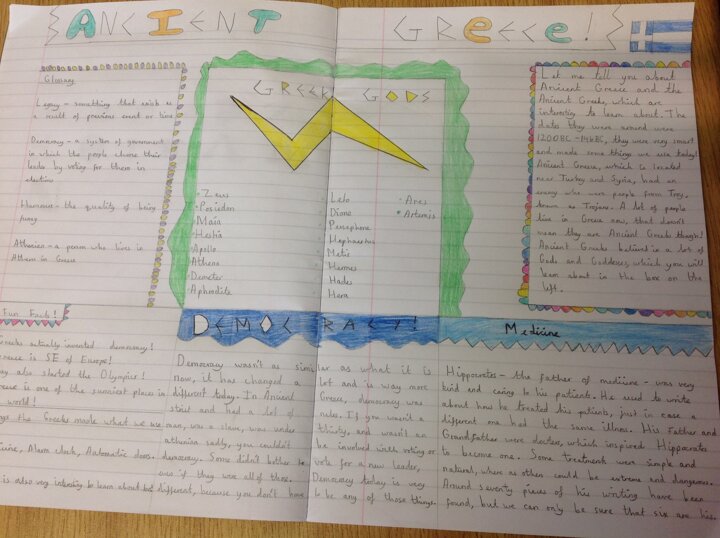 ANCIENT GREECE!
Glossary
Legacy - something that exists as
a result of previous event or time
Democracy - a system of government
in which the people choose their
leads by voting for them in
elections
Humour - the quality of being
funny
Athenian - a person who lives in
Athens in Greece
GREEK GODS
Zeus
Posiedon
Maia
Hestia
Apollo
Athena
Demeter
Aphrodite
Leto
Dione
Persephone
Hephaestus
Metis
Hermes
Hades
Hera
Ares
Artemis
Let me tell you about
Ancient Greece and the
Ancient Greeks, which are
interesting to learn about. The
dates they were around were
1200BC-146BC, they were very smart
and made some things we use today!
Ancient Greece, which is located
near Turkey and Syria, had an
enemy who were people from Troy,
known as Trojans. A lot of people
live in Greece now, that doesn't
mean they are Ancient Greeks though!
Ancient Greeks believed in a lot of
Gods and Goddesses, which you will
learn about in the box on the
left.
Fun Facts!
Greeks actually invented democracy!
Greece is SE of Europe!
They also started the Olympics!
Greece is one of the sunniest places in
world!
the Greeks made what we use
Alarm clock, Automatic doors.
is also very interesting to learn about but
DEMOCRACY!
Democracy wasn't as similar as what it is
now, it has changed a lot and is way more
different today. In Ancient Greece, democracy was
strict and had a lot of rules. If you wasn't a
man, was a slave, was under thirty, and wasn't an
athenian sadly, you couldn't be involved with voting or
democracy. Some didn't bother to vote for a new leader,
even if they were all of these. Democracy today is very
different, because you don't have to be any of those things.
Medicine
Hippocrates - the father of medicine - was very
kind and caring to his patients. He used to write
about how he treated his patients, just in case a
different one had the same illness. His Father and
Grandfather were doctors, which inspired Hippocrates
to become one. Some treatments were simple and
natural, where as others could be extreme and dangerous.
Around seventy pieces of his writing have been
found, but we can only be sure that six are his.